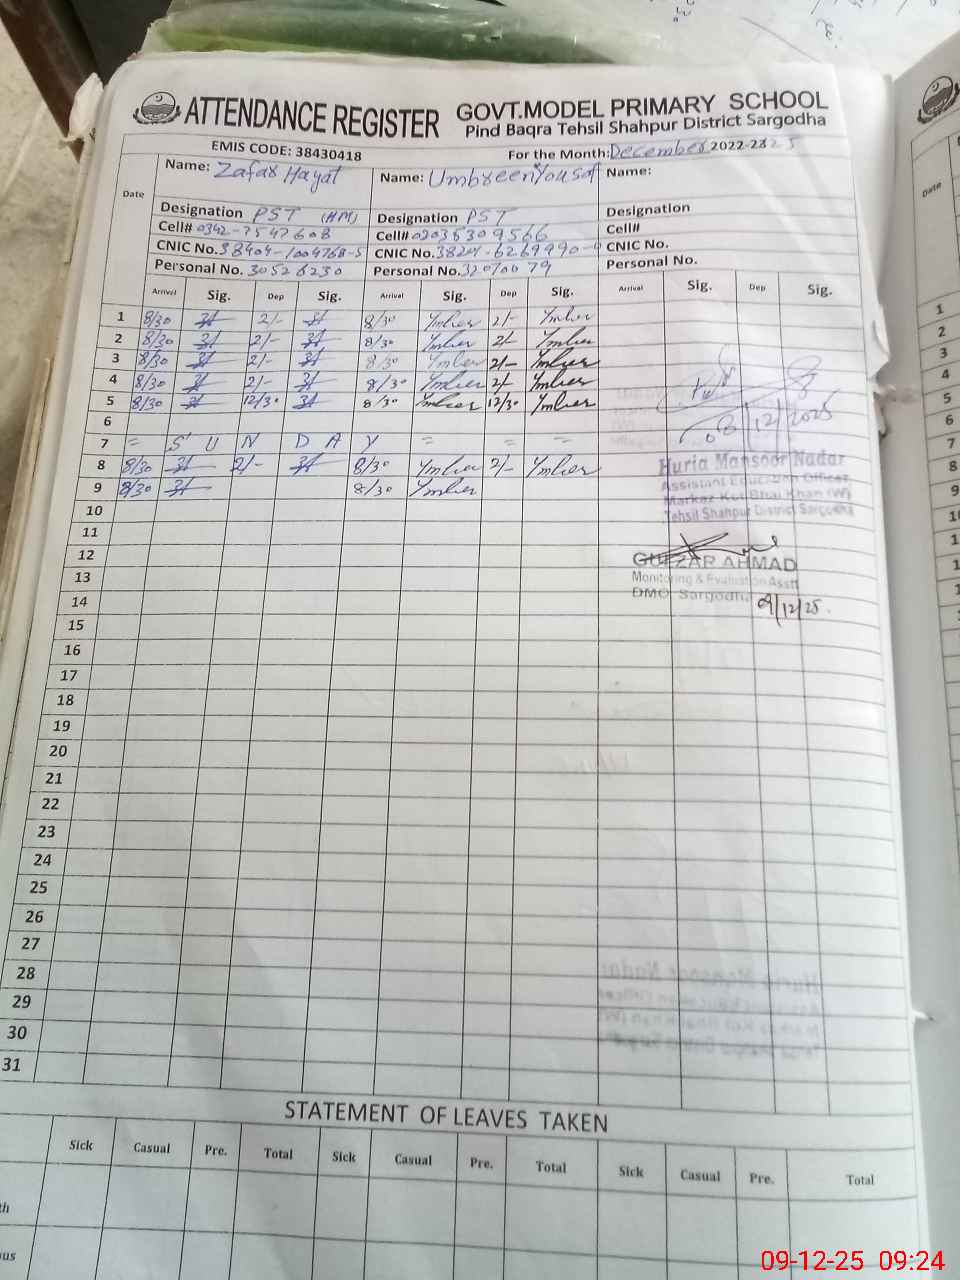 ATTENDANCE REGISTER GOVT.MODEL PRIMARY SCHOOL
Pind Baqra Tehsil Shahpur District Sargodha
EMIS CODE: 38430418 For the Month: December 2022-23 25
Date Name: Zafar Hayat Name: Umbreen Yousaf Name:
Designation PST (HM) Designation PST Designation
Cell# 0342-7547608 Cell# 02036309566 Cell#
CNIC No. 38404-1004768-5 CNIC No. CNIC No.
Personal No. 30526230 Personal No. Personal No.
Arrival Sig. Dep Sig. Arrival Sig. Dep Sig. Arrival Sig. Dep Sig.
1 8/30 2/- 8/30 Ymber 2/- Ymber
2 8/30 2/- 8/30 Ymber 2/- Ymber
3 8/30 2/- 8/30 Ymber 2/- Ymber
4 8/30 2/- 8/30 Ymber 2/- Ymber
5 8/30 12/30 8/30 Ymber 12/30 Ymber
6
7 = S U N D A Y = = =
8 8/30 2/- 8/30 Ymber 2/- Ymber
9 8/30 8/30 Ymber
08/12/2025
Huria Mansoor Nadar
Assistant Education Officer
Markaz Kot Bhai Khan (W)
Tehsil Shahpur District Sargodha
10
11
12
13
14
GULZAR AHMAD
Monitoring & Evaluation Asstt
DMO Sargodha 09/12/25.
15
16
17
18
19
20
21
22
23
24
25
26
27
28
29
30
31
STATEMENT OF LEAVES TAKEN
Sick Casual Pre. Total Sick Casual Pre. Total Sick Casual Pre. Total
th
ous
09-12-25 09:24
Date
1
2
3
4
5
6
7
8
9